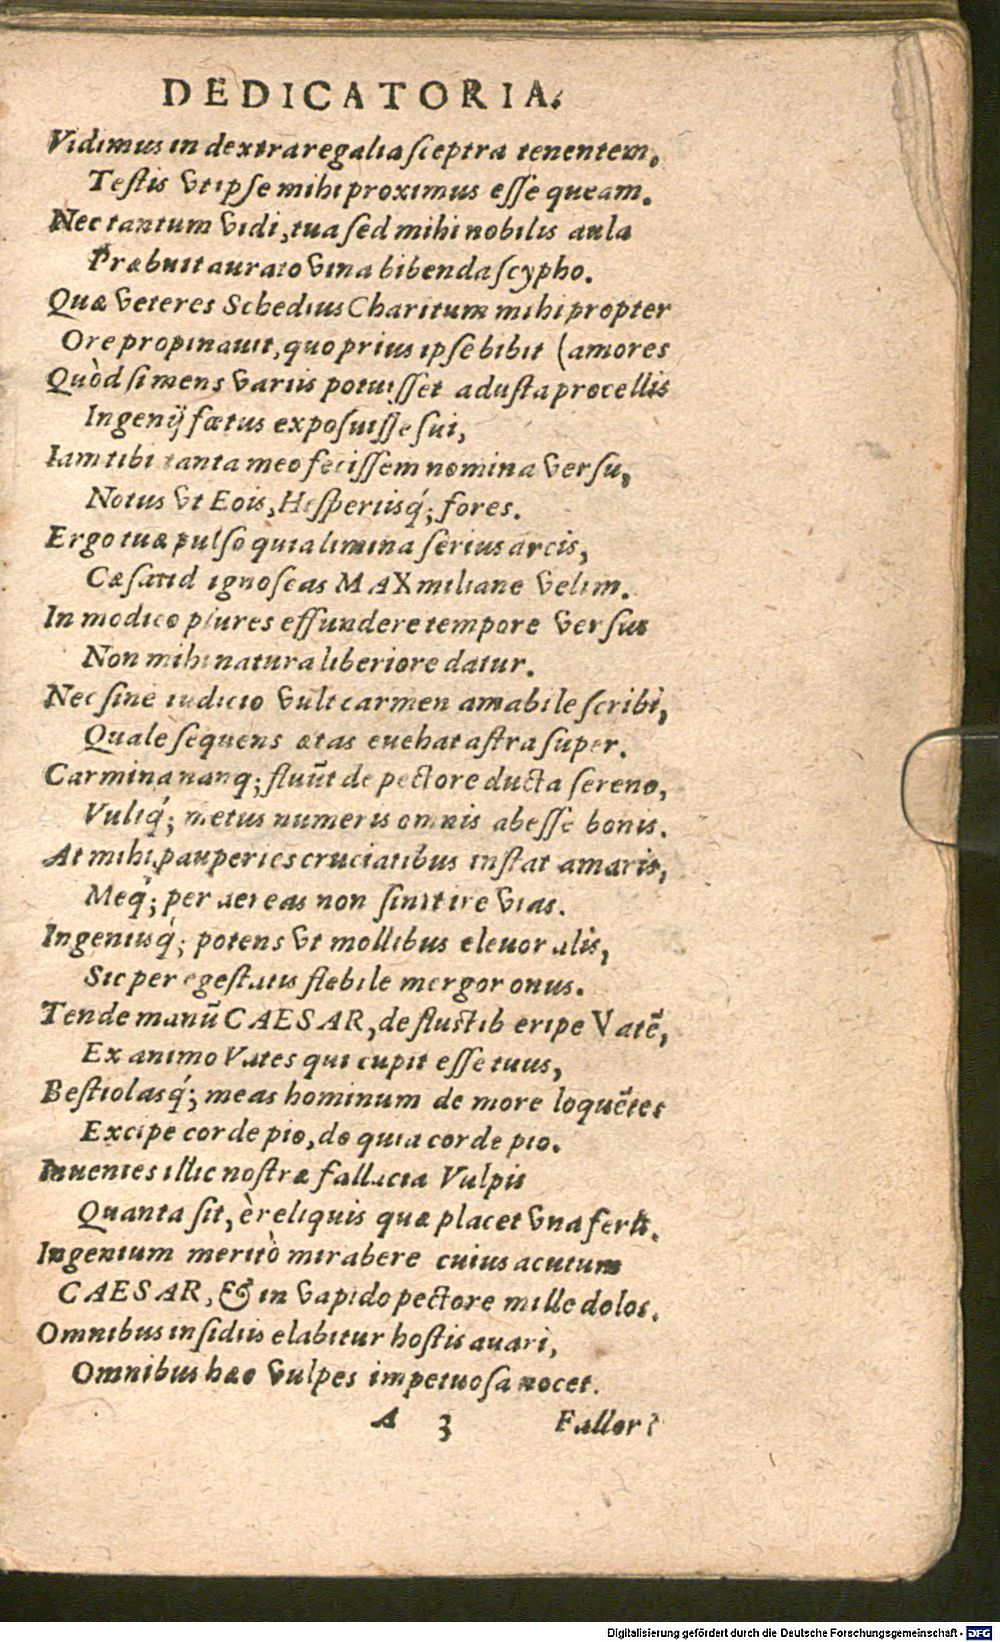 DEDICATORIA.
Vidimus in dextra regalia sceptra tenentem,
Testis vt ipse mihi proximus esse queam.
Nec tantum vidi, tua sed mihi nobilis aula
Præbuit aurato vina bibenda scypho.
Quæ veteres Schedius Charitum mihi propter
Ore propinauit, quo prius ipse bibit (amores
Quòd si mens variis potuisset adusta procellis
Ingenij fœtus exposuisse sui,
Iam tibi tanta meo fecissem nomina versu,
Notus vt Eois, Hesperiisq́; fores.
Ergo tuæ pulso quia limina serius arcis,
Cæsarid ignoscas MAXmiliane velim.
In modico plures effundere tempore versus
Non mihi natura liberiore datur.
Nec sine iudicio vult carmen amabile scribi,
Quale sequens ætas euehat astra super.
Carmina nanq; fluũt de pectore ducta sereno,
Vultq́; metus numeris omnis abesse bonis.
At mihi pauperies cruciatibus instat amaris,
Meq́; per aereas non sinit ire vias.
Ingeniisq́; potens vt mollibus eleuor alis,
Sic per egestatis flebile mergor onus.
Tende manũ CAESAR, de fluctib eripe Vatẽ,
Ex animo Vates qui cupit esse tuus,
Bestiolasq́; meas hominum de more loquẽtes
Excipe corde pio, do quia corde pio.
Inuenies illic nostræ fallacia Vulpis
Quanta sit, è reliquis quæ placet vna feris.
Ingenium meritò mirabere cuius acutum
CAESAR, & in vapido pectore mille dolos.
Omnibus insidiis elabitur hostis auari,
Omnibus hæc vulpes impetuosa nocet.
A 3 Fallor?
Digitalisierung gefördert durch die Deutsche Forschungsgemeinschaft - DFG